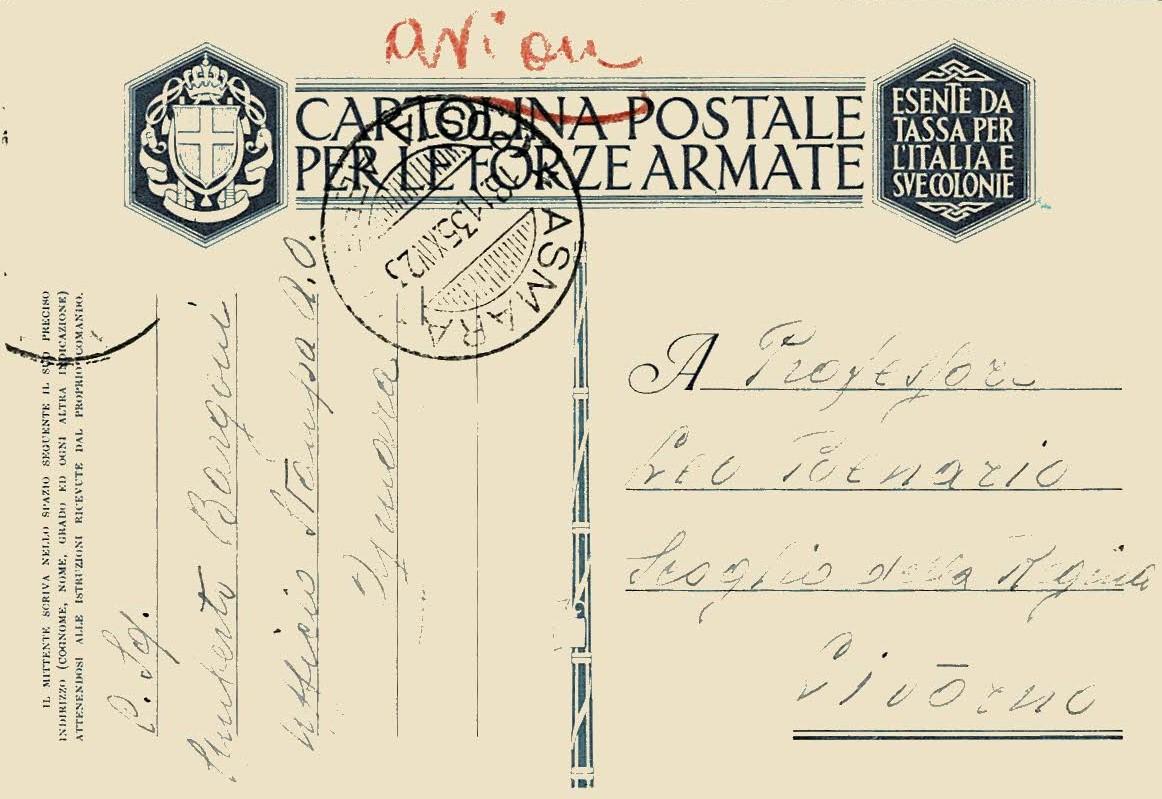 avion
CARTOLINA POSTALE
PER LE FORZE ARMATE
ESENTE DA
TASSA PER
L'ITALIA E
SVE COLONIE
ASMARA
POSTA
18.11.35.XIV 23
IL MITTENTE SCRIVA NELLO SPAZIO SEGUENTE IL SUO PRECISO
INDIRIZZO (COGNOME, NOME, GRADO ED OGNI ALTRA INDICAZIONE)
ATTENENDOSI ALLE ISTRUZIONI RICEVUTE DAL PROPRIO COMANDO.
Umberto
Ufficio Stampa A.O.
A Professore
Leo
Scoglio della Regina
Livorno